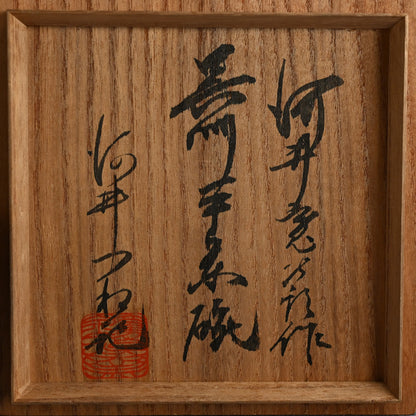 河井寛次郎作
呉州平茶碗
河井つね記